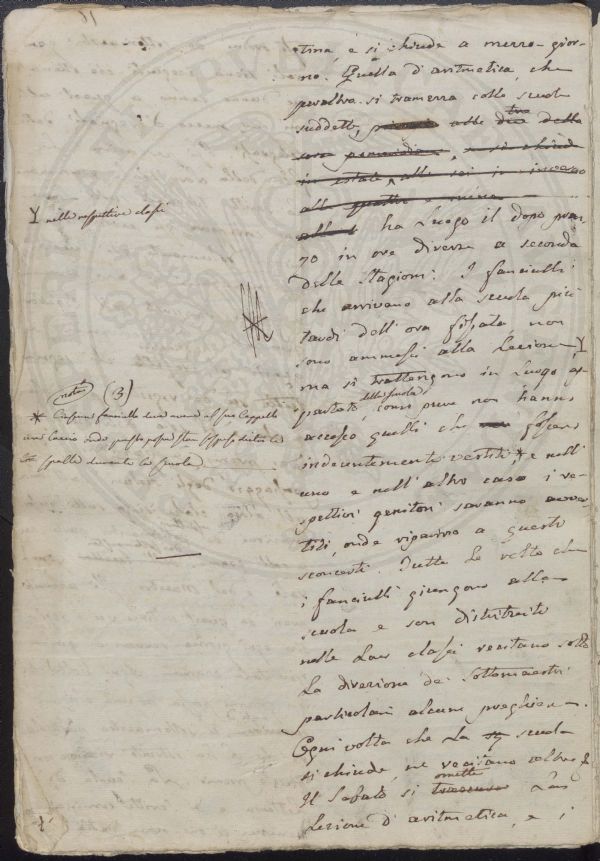 tina e si chiude a mezzo-gior-
no. Quella d'aritmetica, che
peraltro si tramezza colle scuole
suddette, alle tre della
in estate, alle sei in inverno
alle quattro e mezza
ha luogo il dopo pran-
zo in ore diverse a seconda
delle Stagioni. I fanciulli
che arrivano alla scuola più
tardi dell'ora fissata, non
sono ammessi alla Lezione
nelle rispettive classi
ma si trattengono in luogo ap-
partato della scuola, come pure non hanno
accesso quelli che fossero
indecentemente vestiti, * e nell'
uno e nell'altro caso i re-
spettivi genitori saranno avver-
titi, onde riparino a questi
sconcerti. Tutte le volte che
i fanciulli giungono alla
scuola e son distribuiti
nelle Loro classi recitano sotto
la direzione dei Sottomaestri
particolari alcune preghiere.
Ogni volta che la scuola
si chiude, ne recitano altre
Il Sabato si omette La
Lezione d'aritmetica, e i
nota (3)
* Ciascun fanciullo deve avere al suo Cappello
un laccio onde questo possa star sospeso dietro le
spalle durante la scuola